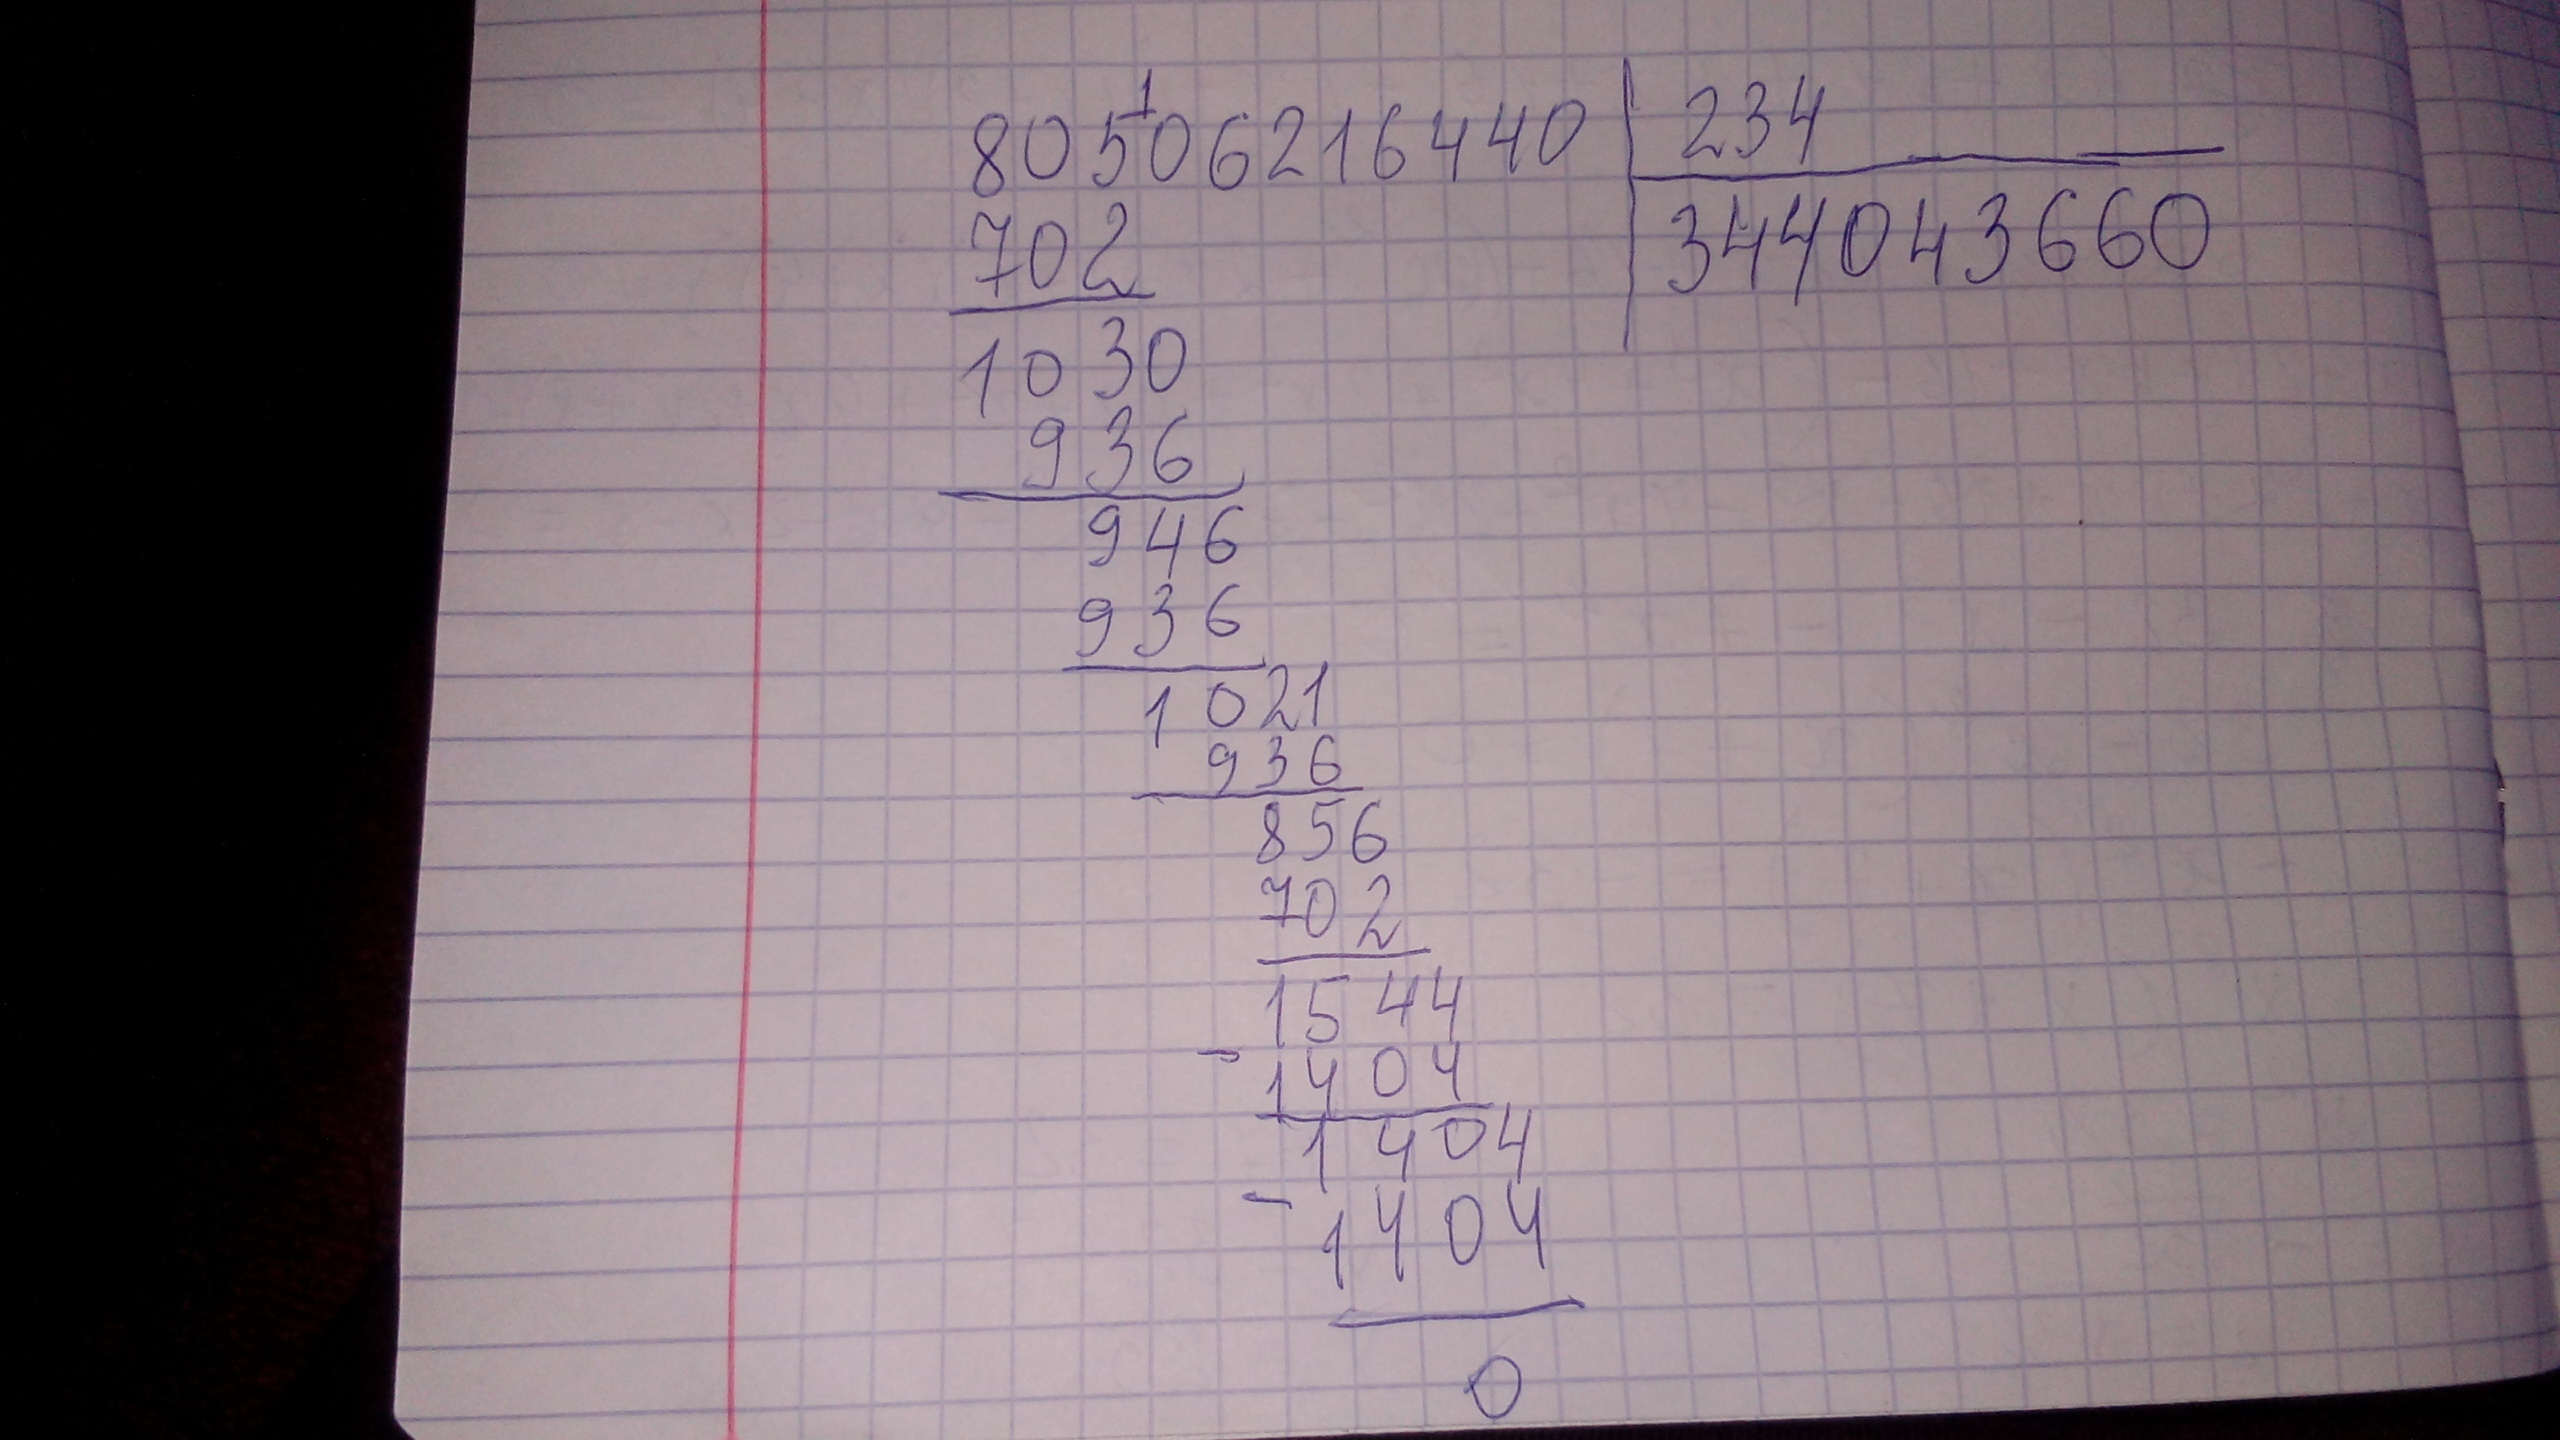 1
80506216440 234
702 344043660
1030
936
946
936
1021
936
856
702
1544
- 1404
1404
- 1404
0